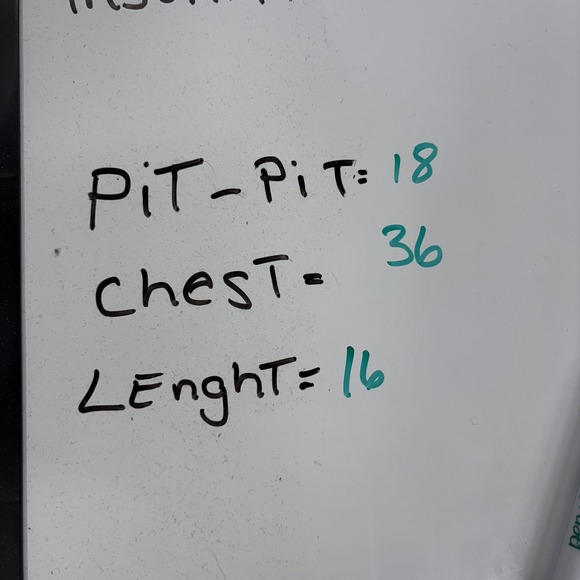 PiT-PiT= 18
chesT= 36
LEnghT= 16